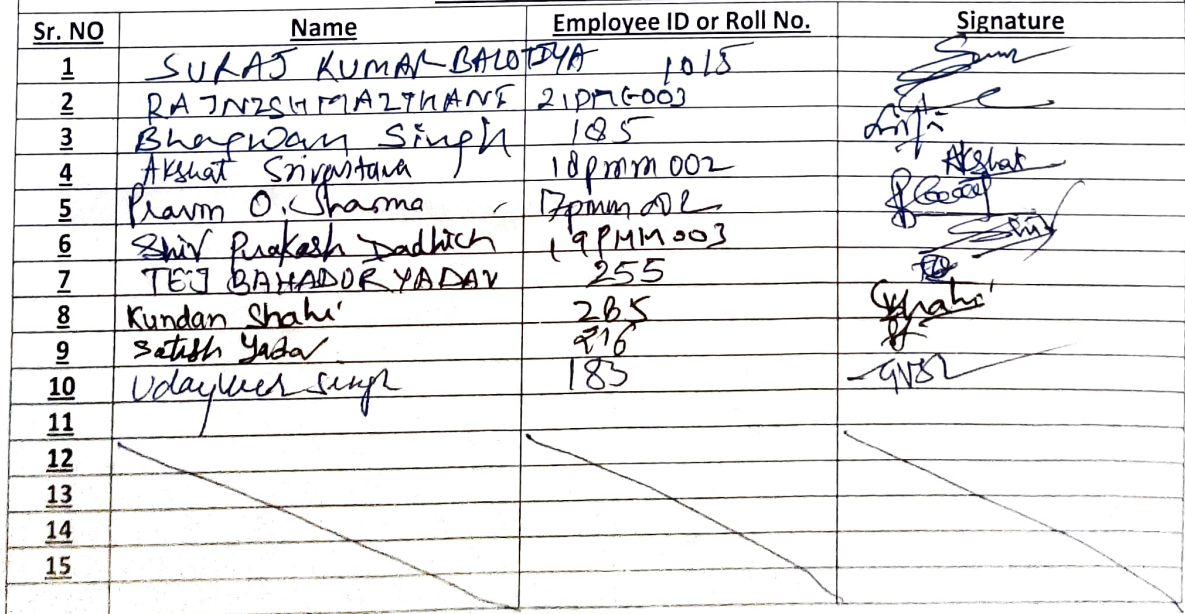 Sr. NO Name Employee ID or Roll No. Signature
1 SURAJ KUMAR BALOTIYA 1015
2 RAJNISH MAITHANI 21PME003
3 Bhagwan Singh 185
4 Akshat Srivastava 18pmm002 Akshat
5 Pravin O. Sharma 17pmm002
6 Shiv Prakash Dadhich 19PMM003 Shiv
7 TEJ BAHADUR YADAV 255
8 Kundan Shahi 265 Kshahi
9 Satish Yadav 216
10 Udayveer Singh 183
11
12
13
14
15